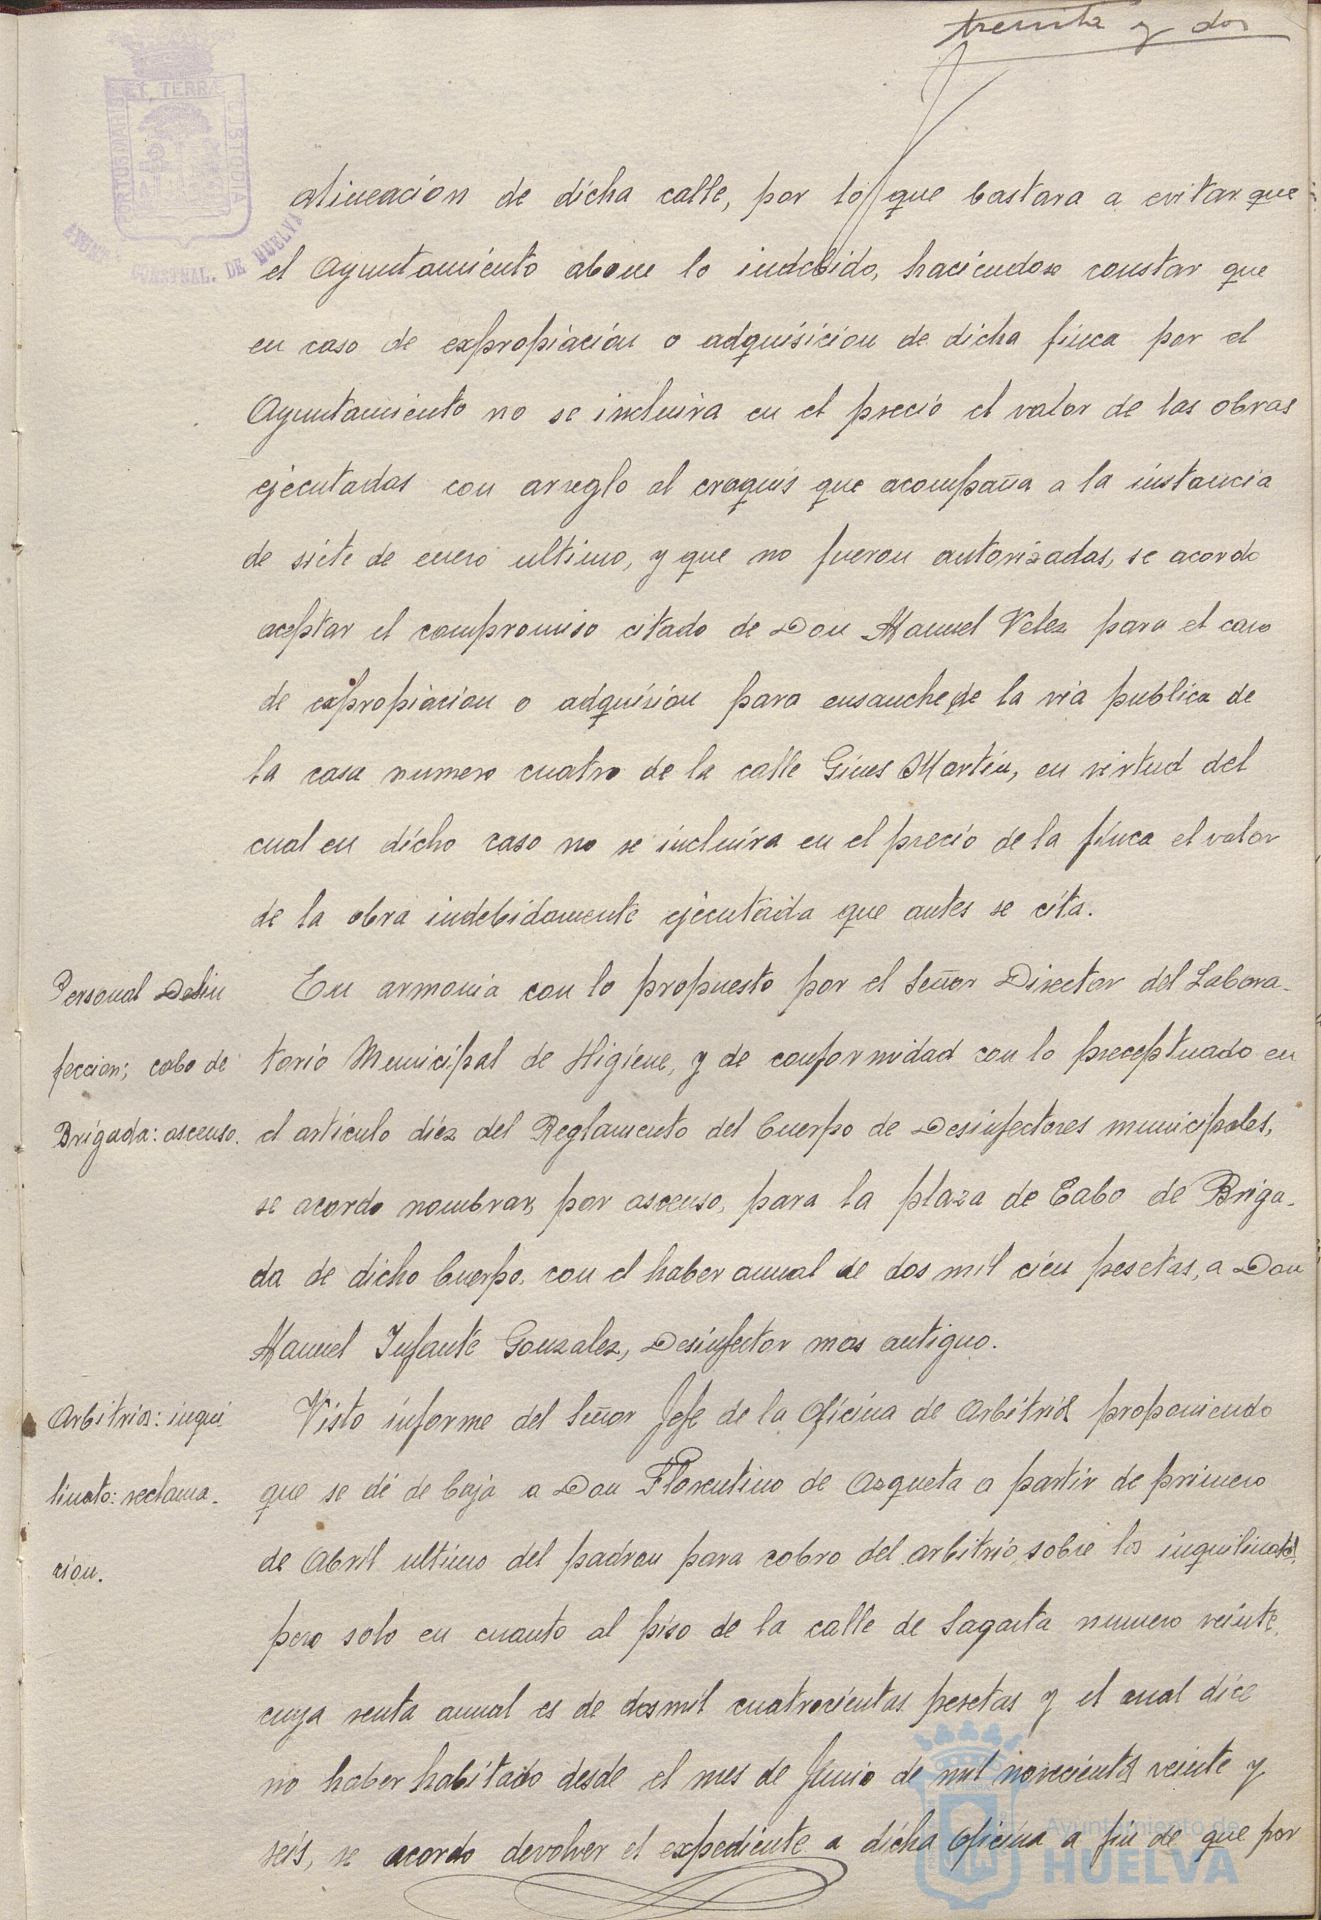 treinta y dos
PORTUS MARIS ET TERRÆ CUSTODIA
DE HUELVA
alineación de dicha calle, por lo que bastara a evitar que
el Ayuntamiento abone lo indebido, haciendose constar que
en caso de expropiación o adquisicion de dicha finca por el
Ayuntamiento no se incluira en el precio el valor de las obras
ejecutadas con arreglo al croquis que acompaña a la instancia
de siete de enero ultimo, y que no fueron autorizadas, se acordo
aceptar el compromiso citado de Don Manuel Velez para el caso
de expropiacion o adquision para ensanche de la via publica de
la casa numero cuatro de la calle Gines Martin, en virtud del
cual en dicho caso no se incluira en el precio de la finca el valor
de la obra indebidamente ejecutada que antes se cita.
Personal Desin
feccion; cabo de
Brigada: ascenso.
En armonia con lo propuesto por el Señor Director del Labora-
torio Municipal de Higiene, y de conformidad con lo preceptuado en
el articulo diez del Reglamento del Cuerpo de Desinfectores municipales,
se acordo nombrar, por ascenso, para la plaza de Cabo de Briga-
da de dicho Cuerpo, con el haber anual de dos mil cien pesetas, a Don
Manuel Infante Gonzalez, Desinfector mas antiguo.
Arbitrios: inqui
linato: reclama-
cion.
Visto informe del Señor Jefe de la Oficina de Arbitrios proponiendo
que se dé de baja a Don Florentino de Azqueta a partir de primero
de Abril ultimo del padron para cobro del arbitrio sobre los inquilinatos,
pero solo en cuanto al piso de la calle de Sagasta numero veinte,
cuya renta anual es de dos mil cuatrocientas pesetas y el cual dice
no haber habitado desde el mes de Junio de mil novecientos veinte y
seis, se acordo devolver el expediente a dicha Oficina a fin de que por
Ayuntamiento de
HUELVA